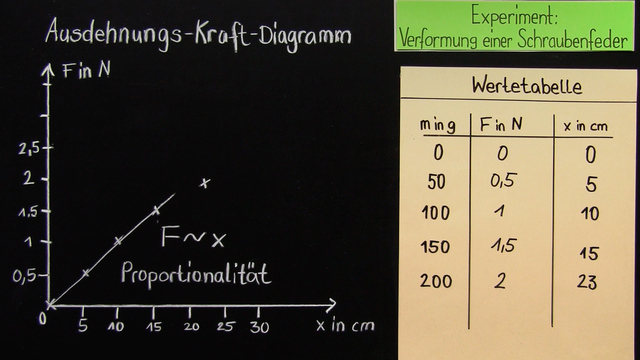 Ausdehnungs-Kraft-Diagramm
F in N
2,5
2
1,5
1
0,5
0
5 10 15 20 25 30 x in cm
F~x
Proportionalität
Experiment:
Verformung einer Schraubenfeder
Wertetabelle
m in g F in N x in cm
0 0 0
50 0,5 5
100 1 10
150 1,5 15
200 2 23